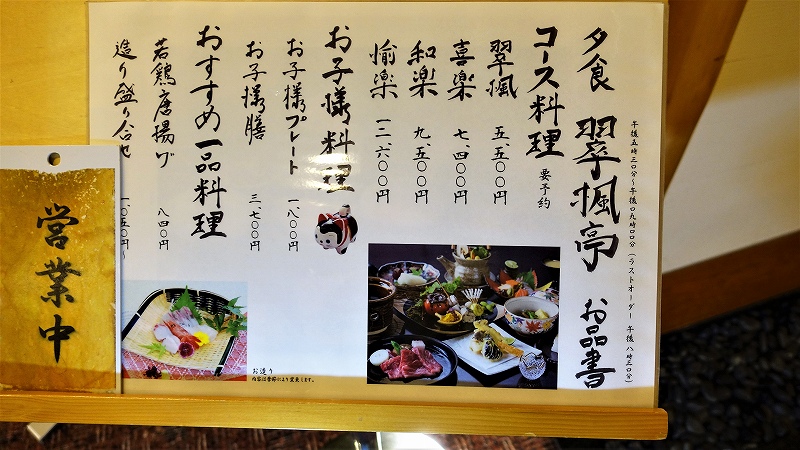 夕食 翠楓亭 お品書
午後五時三〇分～午後〇九時〇〇分（ラストオーダー 午後八時三〇分）
コース料理 要予約
翠楓 五、五〇〇円
喜楽 七、四〇〇円
和楽 九、五〇〇円
愉楽 一二、六〇〇円
お子様料理
お子様プレート 一、八〇〇円
お子様膳 三、七〇〇円
おすすめ一品料理
若鶏唐揚げ 八四〇円
造り盛り合せ 一、〇五〇円～
お造り
内容は季節により変更します。
営業中